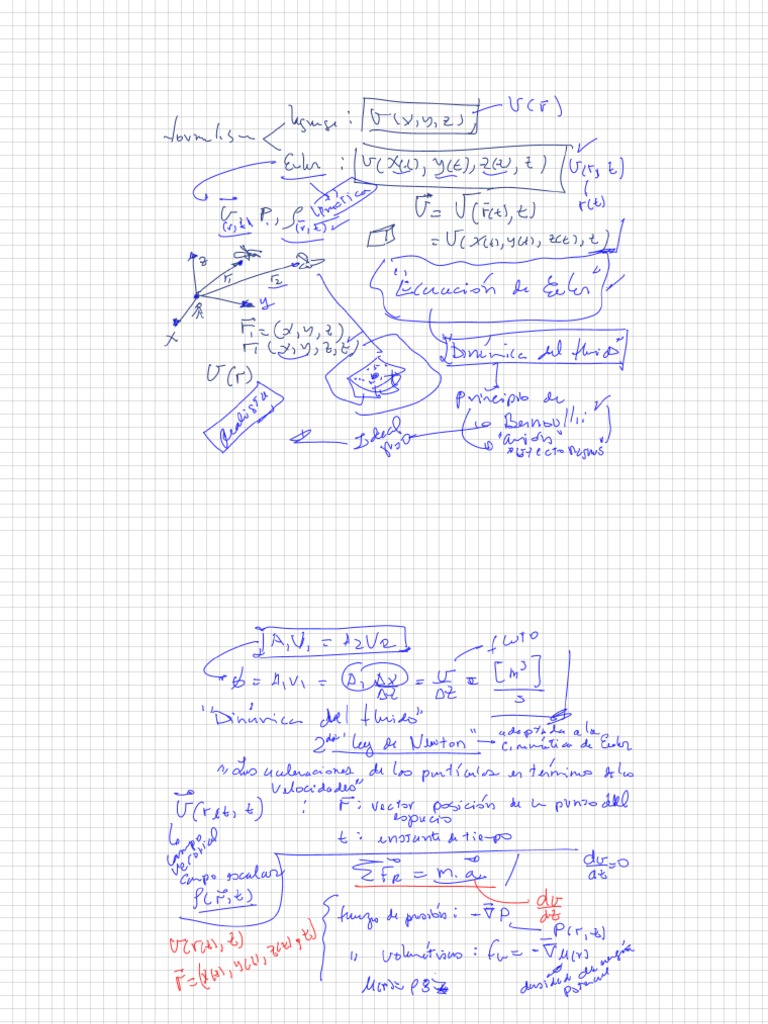 formalism
lagrange : v(x, y, z) — v(r)
Euler : v(x(t), y(t), z(t), t) v(r, t)
r(t)
práctica
v⃗(r,t), P, ρ(r⃗,t)
v⃗ = v⃗(r⃗(t), t)
= v(x(t), y(t), z(t), t)
z
r₁
r₂
y
x
"Ecuación de Euler"
r⃗₁ = (x, y, z)
r₁(x, y, z, t)
"Dinámica del fluido"
v(r)
Principio de
Bernoulli
"avión"
Ideal
realista
A₁V₁ = A₂V₂
flujo
ϕ = A₁V₁ = A₁ Δx/Δt = V/Δt = [m³]/s
"Dinámica del fluido"
2da Ley de Newton" adaptada a la
cinemática de Euler
"Las aceleraciones de las partículas en término de las
velocidades"
: r⃗: vector posición de un punto del
espacio
t : instante de tiempo
campo
vectorial
campo escalar
ρ(r⃗, t)
Σ F⃗R = m. a⃗
dv/dt = 0
dv/dt
fuerza de presión : -∇⃗P
P(r, t)
" volumétricas : = -∇⃗μ(r)
densidad de energía
potencial
v(r(t), t)
r⃗ = (x(t), y(t), z(t), t)